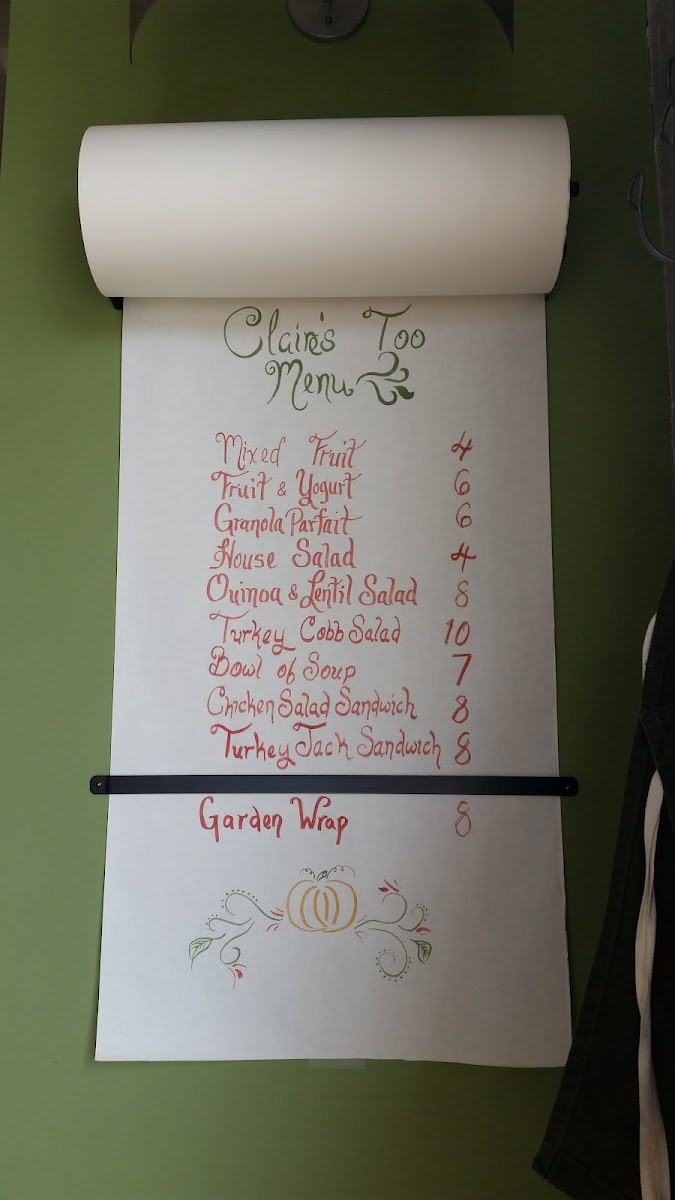 Claire's Too
Menu
Mixed Fruit 4
Fruit & Yogurt 6
Granola Parfait 6
House Salad 4
Quinoa & Lentil Salad 8
Turkey Cobb Salad 10
Bowl of Soup 7
Chicken Salad Sandwich 8
Turkey Jack Sandwich 8
Garden Wrap 8